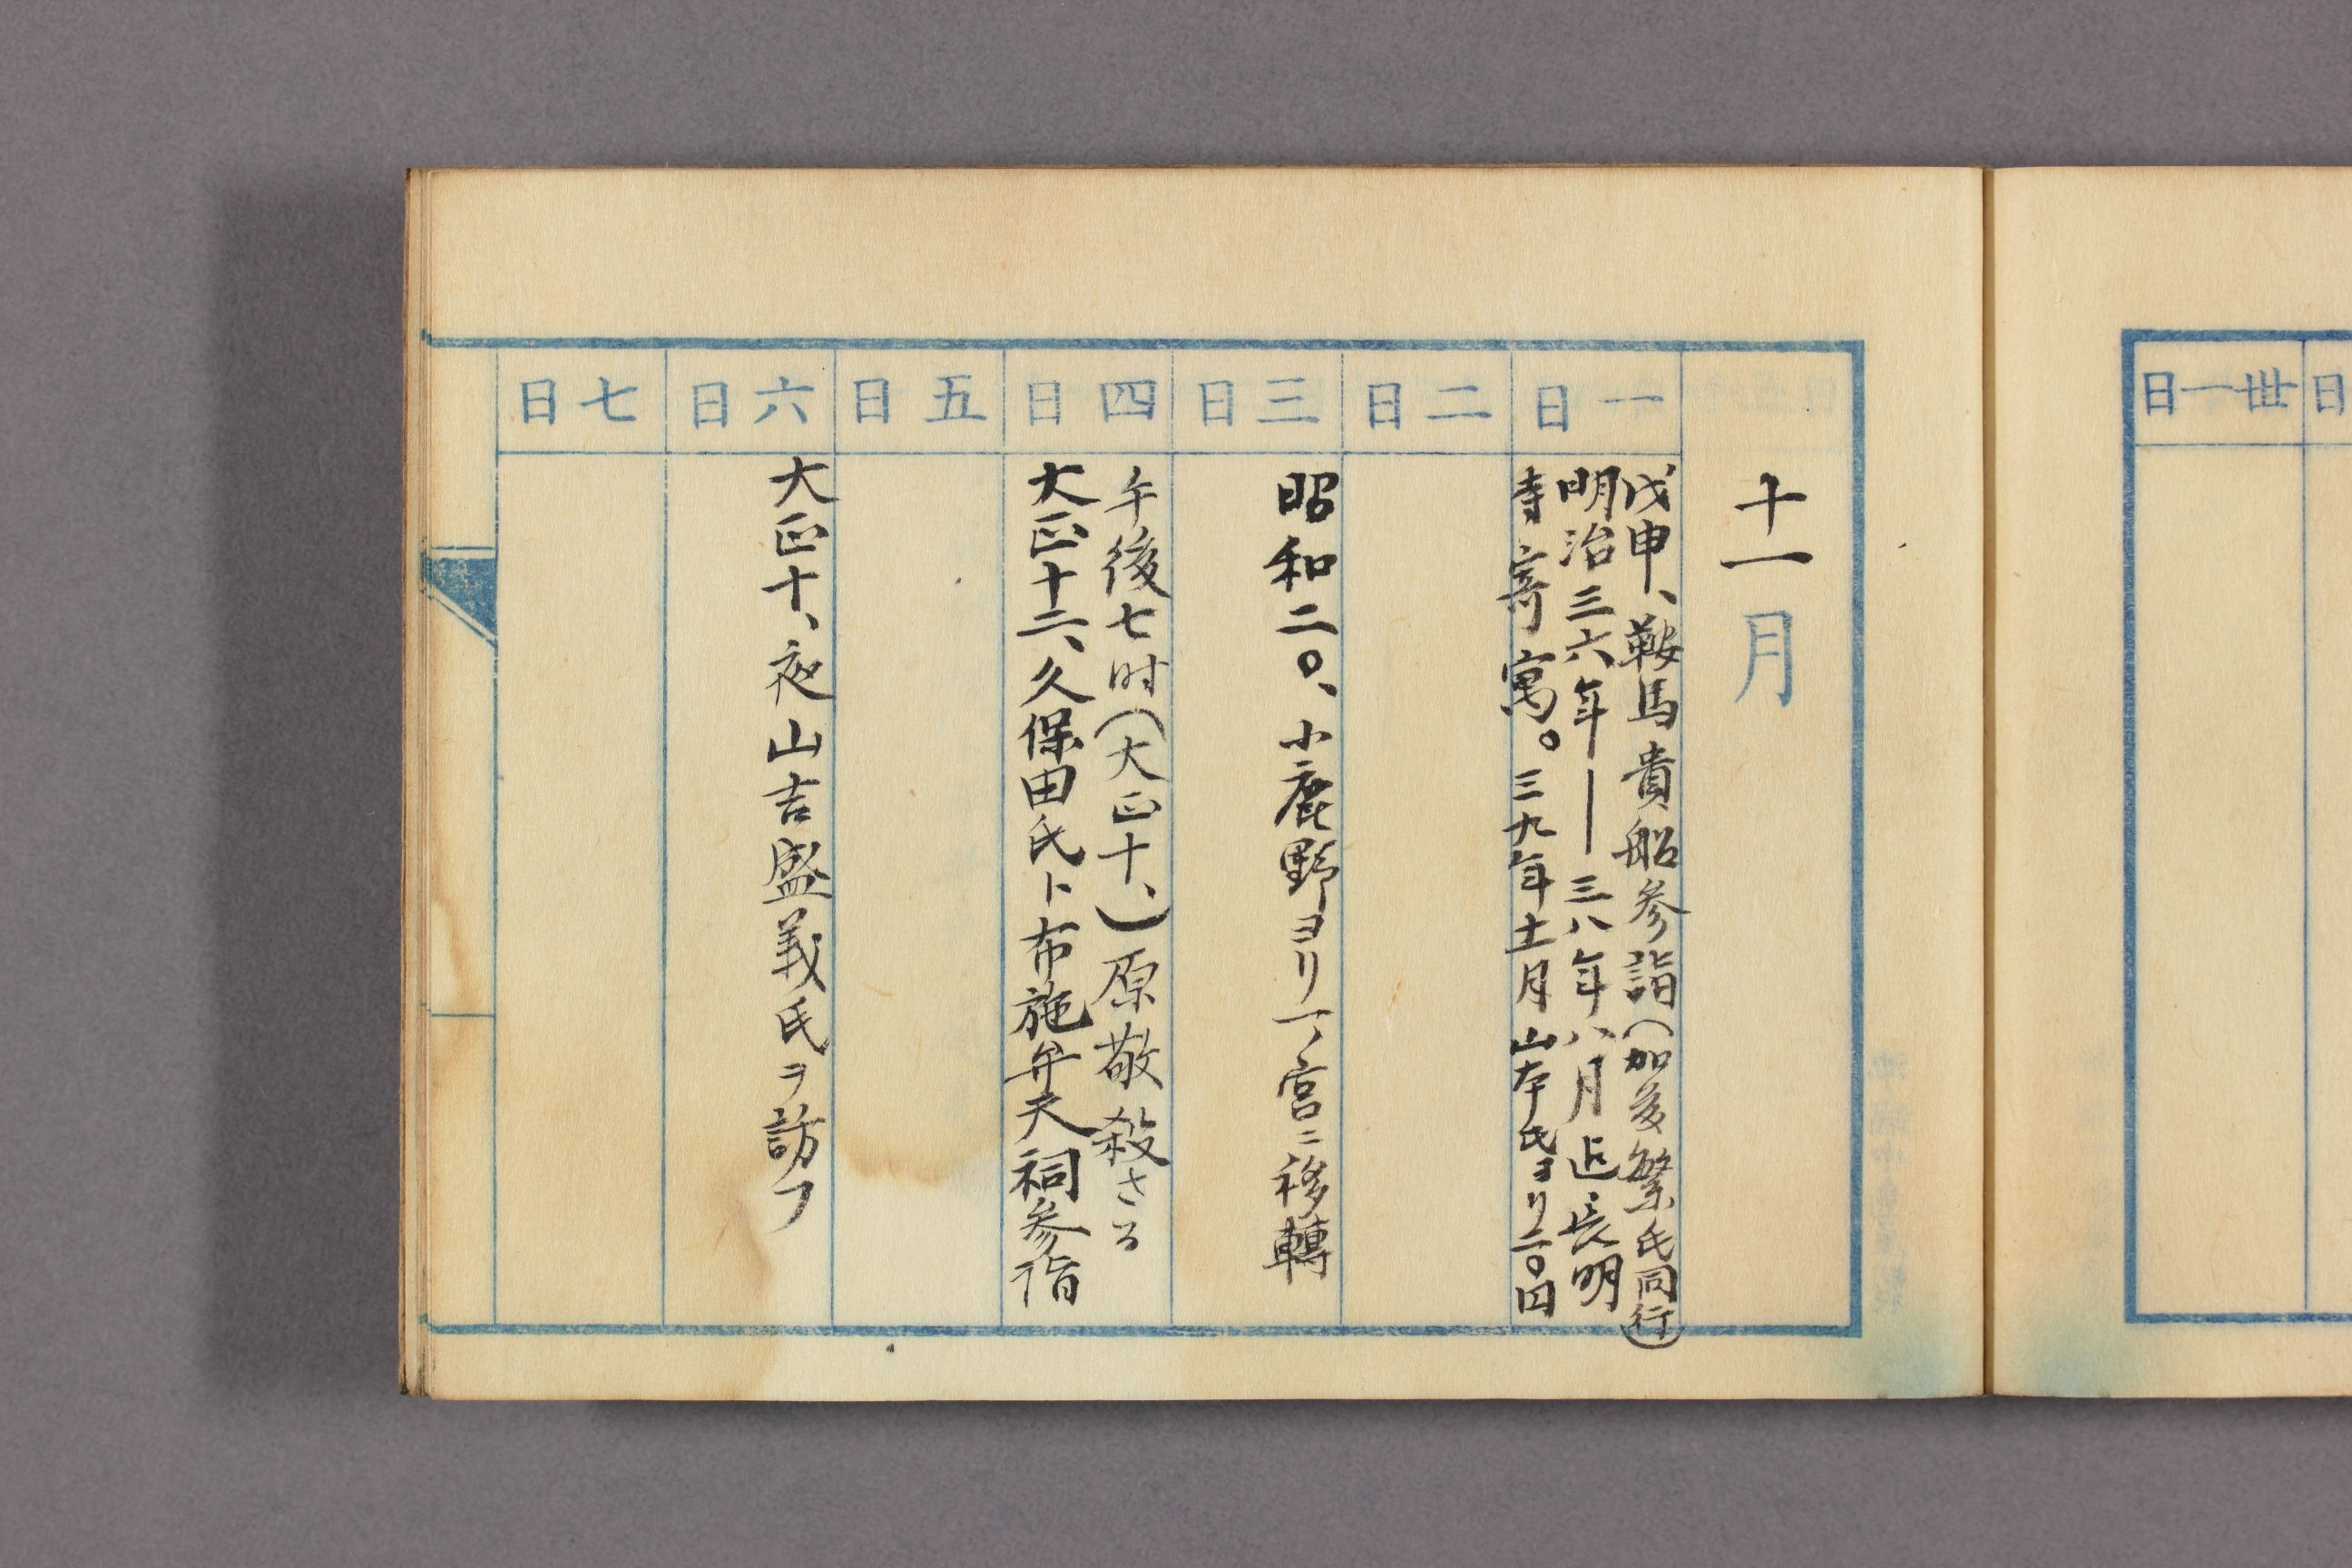 卅一日
日
十一月
一日
戊申、鞍馬貴船参詣(加多繁氏同行)
明治三六年―三八年八月迄長明
寺寄寓。三九年十一月山本氏ヨリ二〇円
二日
三日
昭和二〇、小鹿野ヨリ一ノ宮ニ移轉
四日
午後七时(大正十、)原敬殺さる
大正十二、久保田氏ト布施弁天祠参詣
五日
六日
大正十、夜山吉盛義氏ヲ訪フ
七日